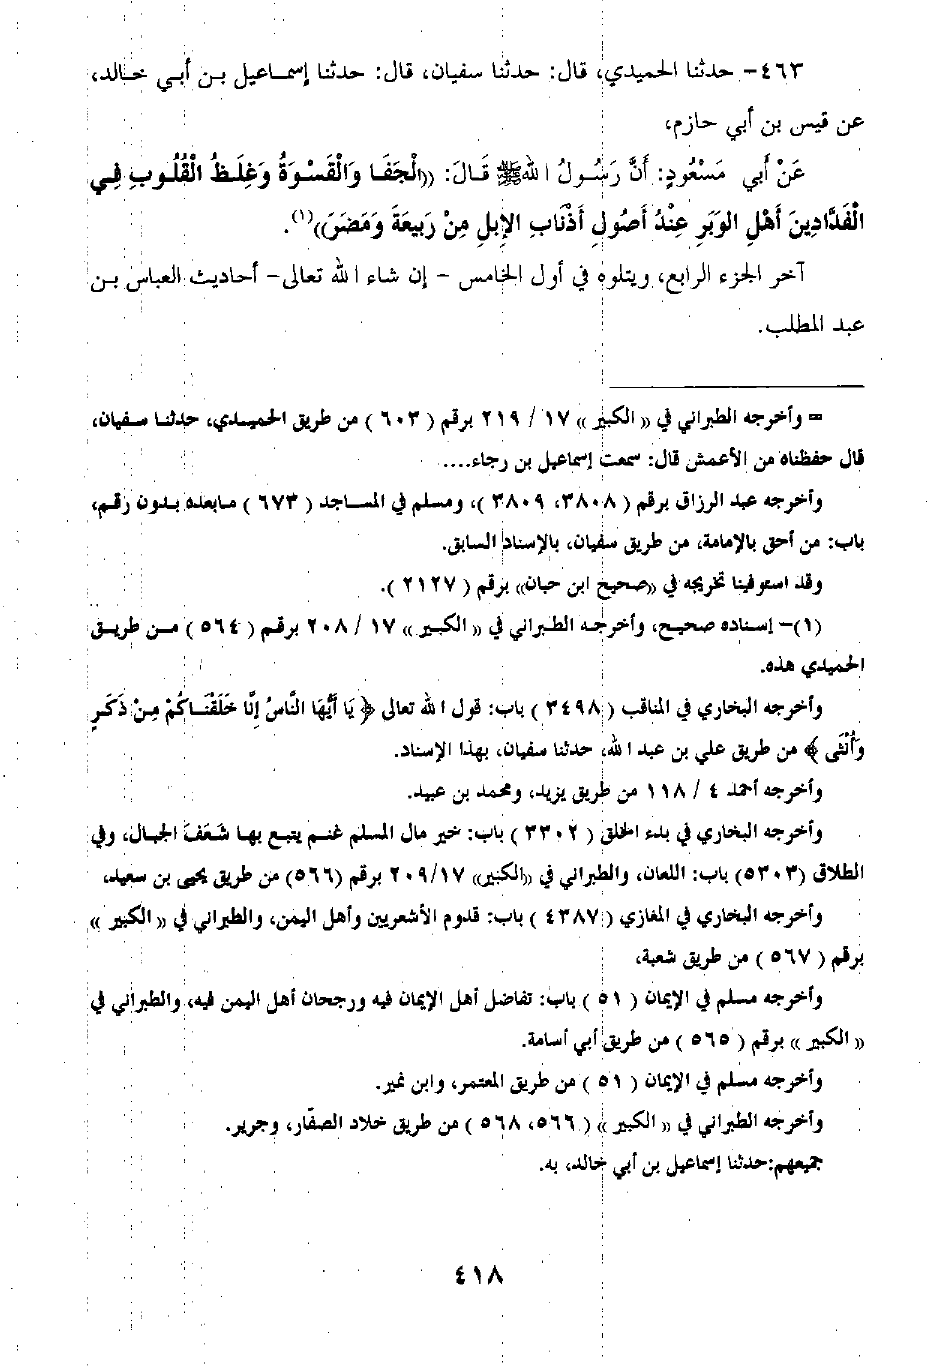 ٤٦٣- حدثنا الحميدي، قال: حدثنا سفيان، قال: حدثنا إسماعيل بن أبي خالد،
عن قيس بن أبي حازم،
عَنْ أَبي مَسْعُودٍ: أَنَّ رَسُولُ اللهﷺ قَالَ: ((الْجَفَا وَالْقَسْوَةُ وَغِلَظُ الْقُلُوبِ فِي
الْفَدَّادِينَ أَهْلِ الوَبَرِ عِنْدُ أَصُولِ أَذْنَابِ الإِبلِ مِنْ رَبِيعَةَ وَمَضَرَ))(١).
آخر الجزء الرابع، ويتلوه في أول الخامس - إن شاء الله تعالى- أحاديث العباس بن
عبد المطلب.
= وأخرجه الطبراني في « الكبير » ١٧ / ٢١٩ برقم ( ٦٠٣ ) من طريق الحميدي، حدثنا سفيان،
قال حفظناه من الأعمش قال: سمعت إسماعيل بن رجاء....
وأخرجه عبد الرزاق برقم ( ٣٨٠٨، ٣٨٠٩ )، ومسلم في المساجد ( ٦٧٣ ) مابعده بدون رقم،
باب: من أحق بالإمامة، من طريق سفيان، بالإسناد السابق.
وقد استوفينا تخريجه في «صحيح ابن حبان» برقم ( ٢١٢٧ ).
(١)- إسناده صحيح، وأخرجه الطبراني في « الكبير » ١٧ / ٢٠٨ برقم ( ٥٦٤ ) من طريق
الحميدي هذه.
وأخرجه البخاري في المناقب ( ٣٤٩٨ ) باب: قول الله تعالى ﴿ يَا أَيُّهَا النَّاسُ إِنَّا خَلَقْنَاكُمْ مِنْ ذَكَرٍ
وَأُنْثَى ﴾ من طريق علي بن عبد الله، حدثنا سفيان، بهذا الإسناد.
وأخرجه أحمد ٤ / ١١٨ من طريق يزيد، ومحمد بن عبيد.
وأخرجه البخاري في بدء الخلق ( ٣٣٠٢ ) باب: خير مال المسلم غنم يتبع بها شَعَفَ الجبال، وفي
الطلاق (٥٣٠٣) باب: اللعان، والطبراني في «الكبير» ٢٠٩/١٧ برقم (٥٦٦) من طريق يحيى بن سعيد،
وأخرجه البخاري في المغازي ( ٤٣٨٧ ) باب: قدوم الأشعريين وأهل اليمن، والطبراني في « الكبير »
برقم ( ٥٦٧ ) من طريق شعبة،
وأخرجه مسلم في الإيمان ( ٥١ ) باب: تفاضل أهل الإيمان فيه ورجحان أهل اليمن فيه، والطبراني في
« الكبير » برقم ( ٥٦٥ ) من طريق أبي أسامة.
وأخرجه مسلم في الإيمان ( ٥١ ) من طريق المعتمر، وابن نمير.
وأخرجه الطبراني في « الكبير » ( ٥٦٦، ٥٦٨ ) من طريق خلاد الصفّار، وجرير.
جميعهم:حدثنا إسماعيل بن أبي خالد، به.
٤١٨